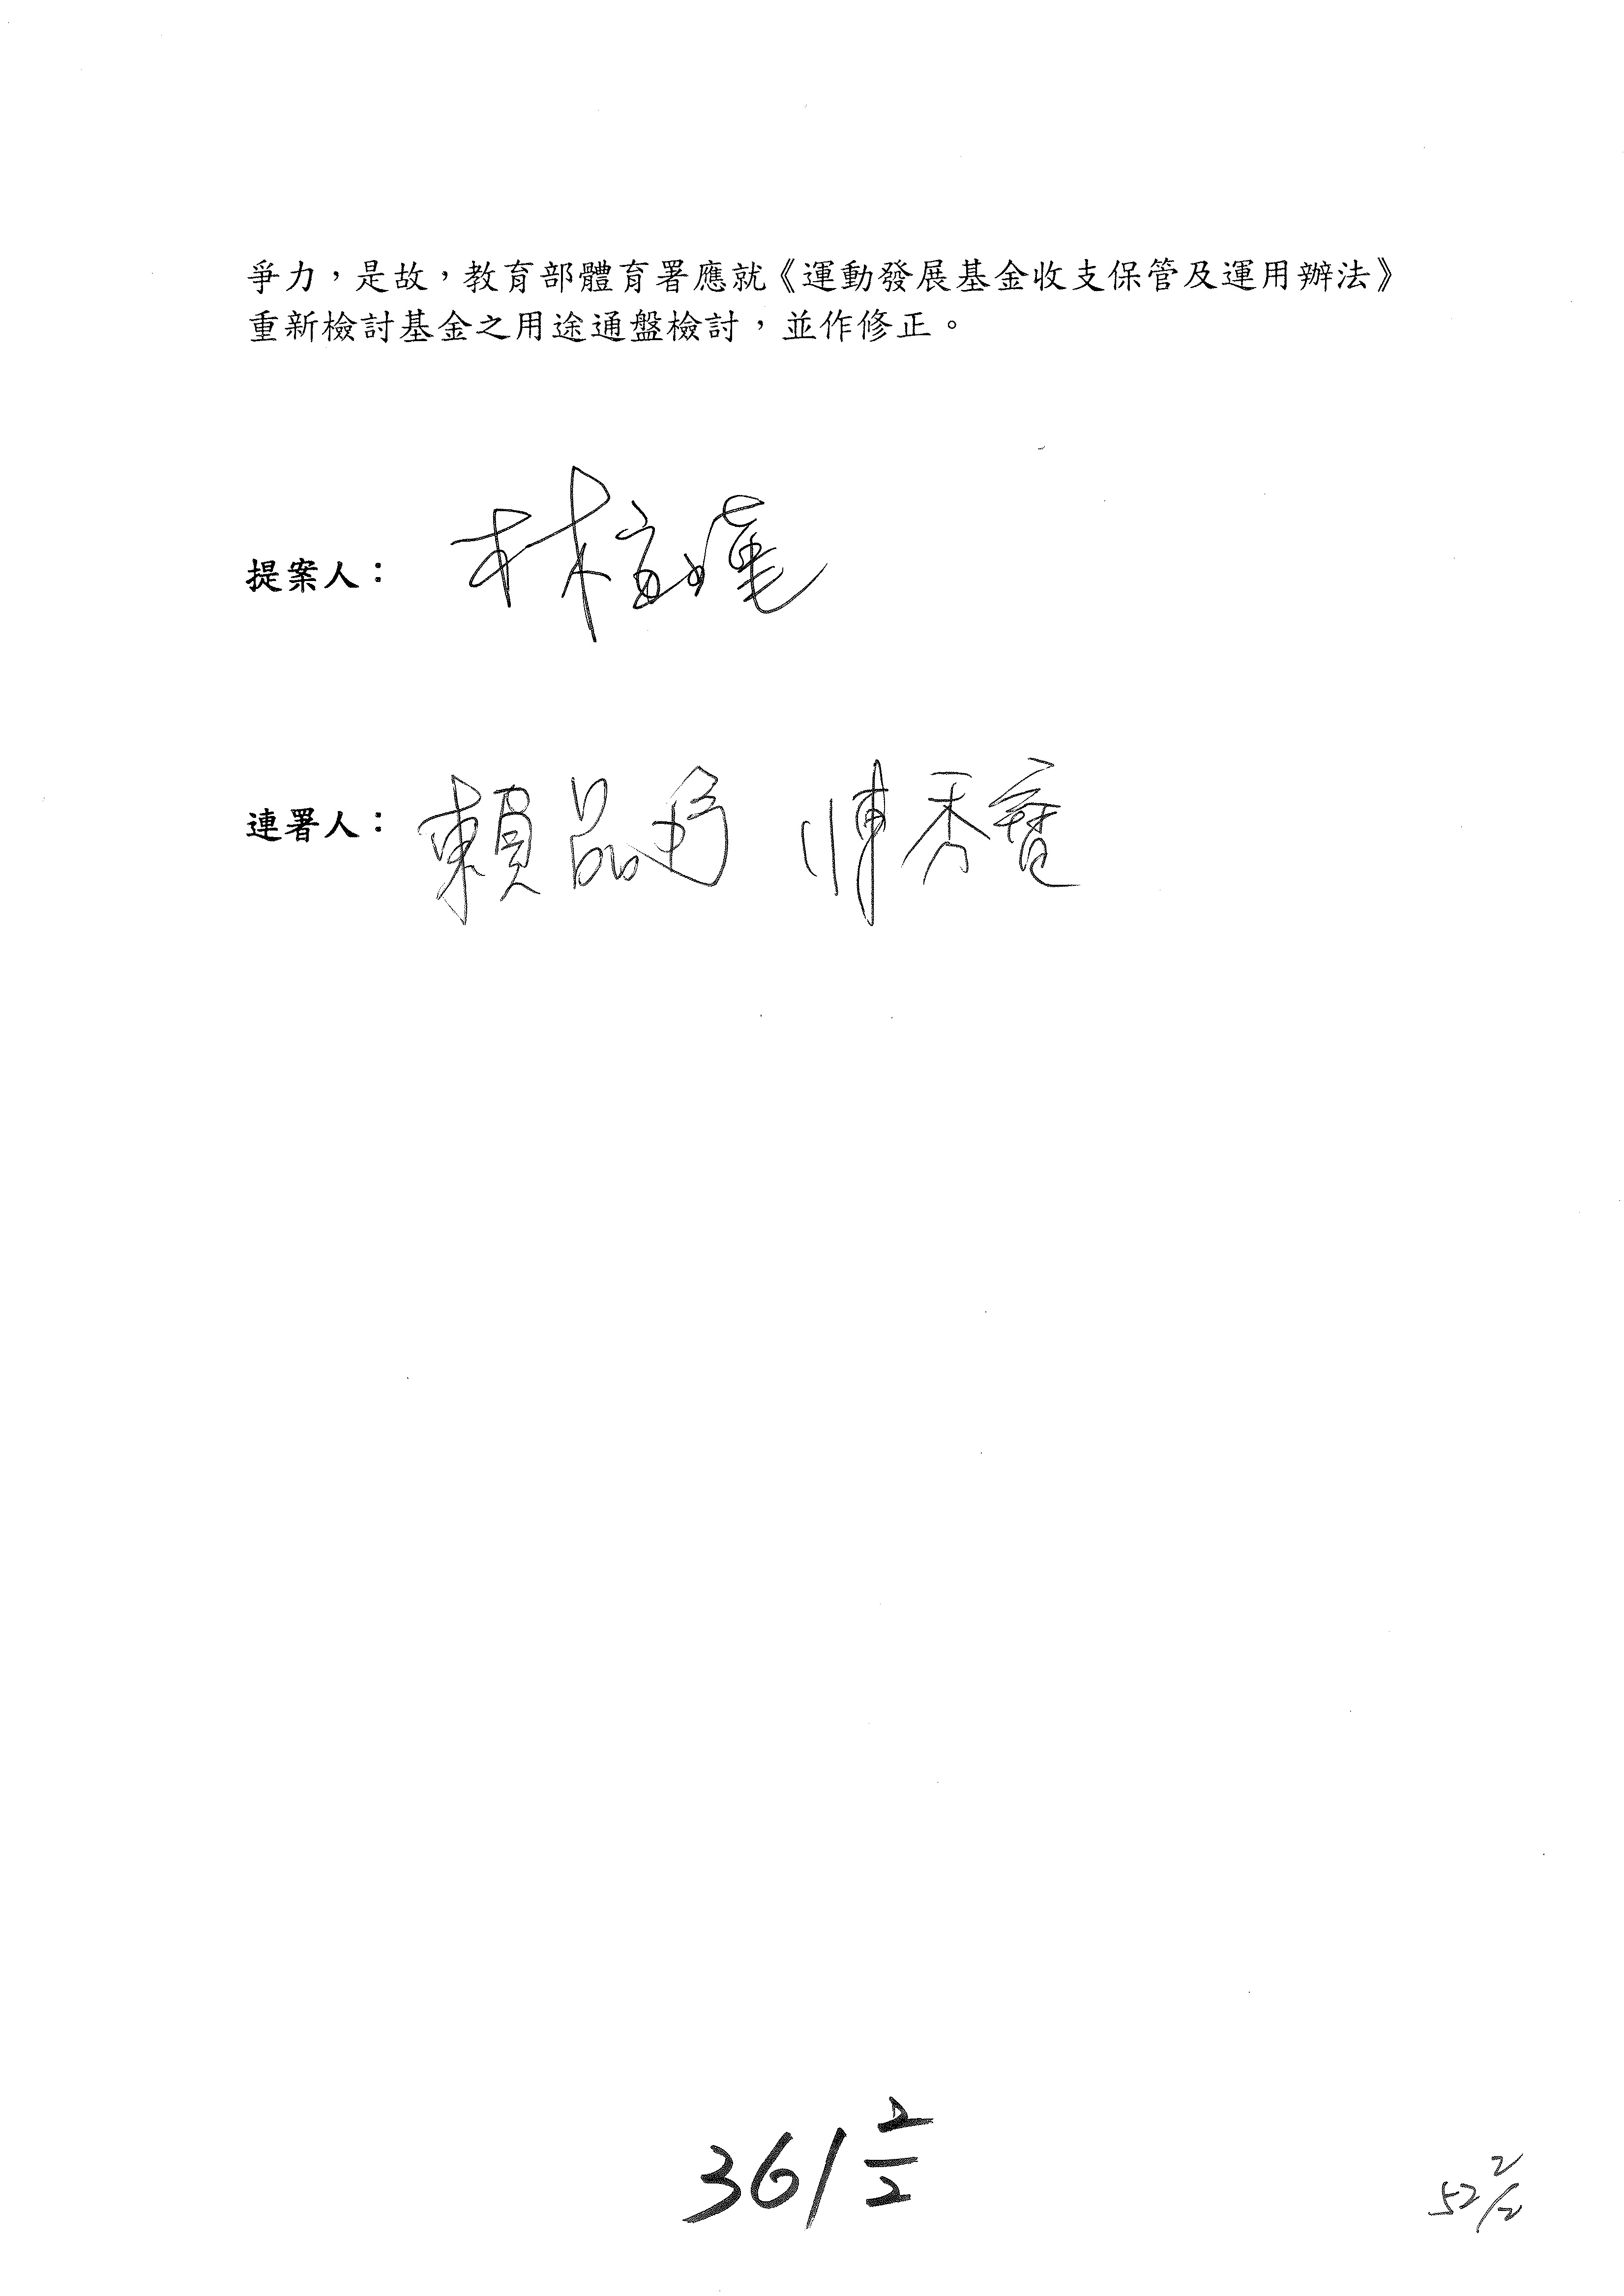 爭力，是故，教育部體育署應就《運動發展基金收支保管及運用辦法》
重新檢討基金之用途通盤檢討，並作修正。
提案人：林宜瑾
連署人：賴品妤 陳秀寳
361 2/2
52 2/2